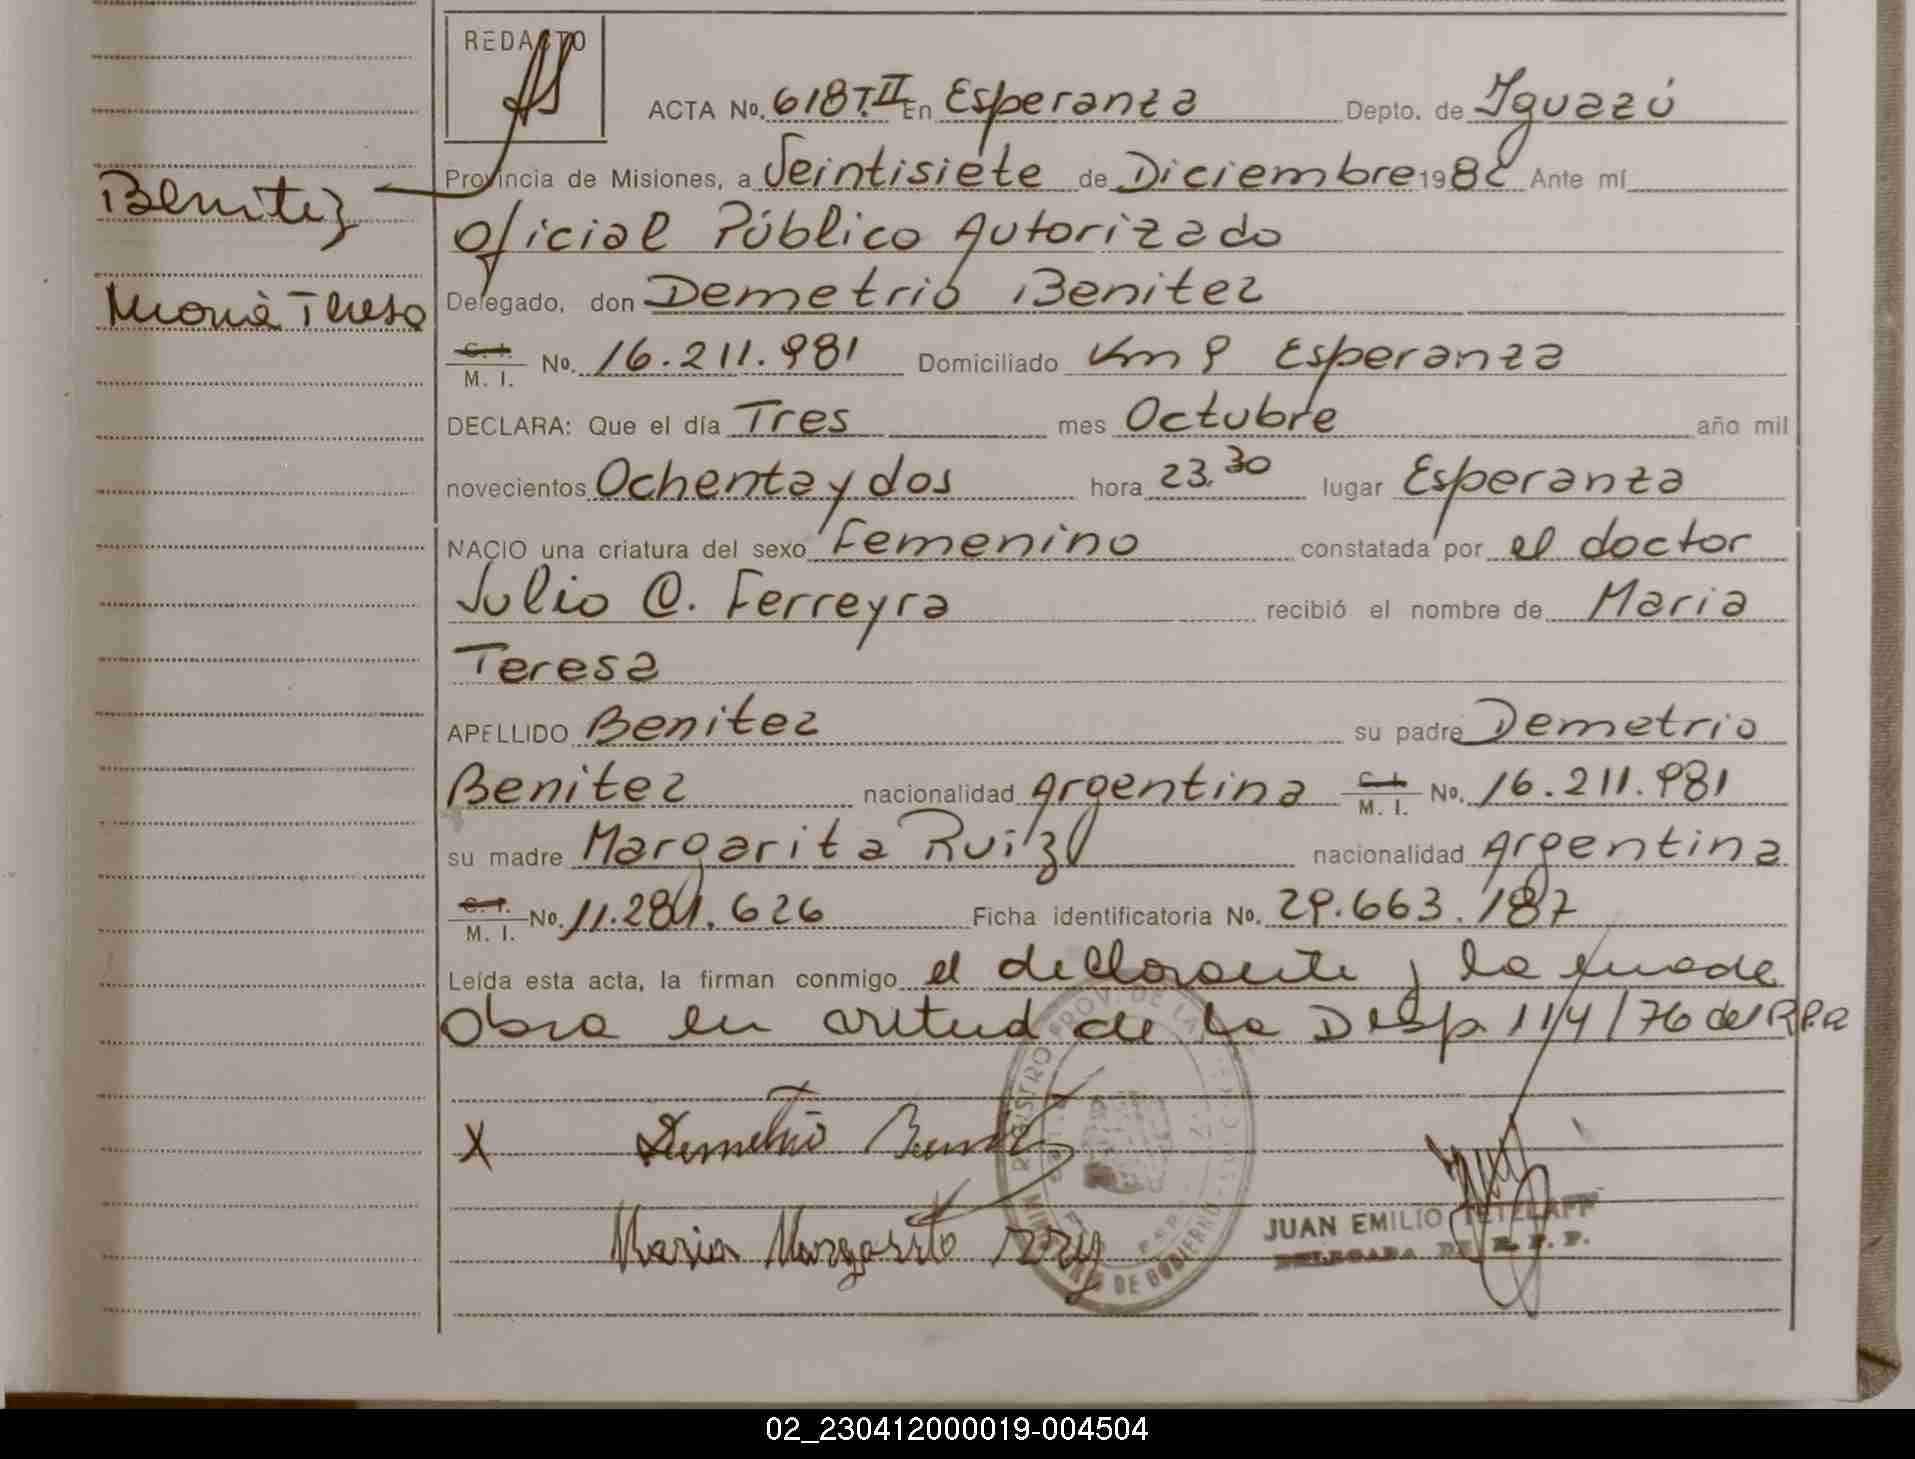 REDACTO
ACTA No. 618 T.II En Esperanza Depto. de Iguazú
Provincia de Misiones, a Veintisiete de Diciembre 1982 Ante mí
Benitez
Oficial Público Autorizado
Maria Teresa
Delegado, don Demetrio Benitez
C. I.
M. I. No. 16.211.981 Domiciliado Km 9 Esperanza
DECLARA: Que el día Tres mes Octubre año mil
novecientos Ochenta y dos hora 23.30 lugar Esperanza
NACIO una criatura del sexo Femenino constatada por el doctor
Julio C. Ferreyra recibió el nombre de Maria
Teresa
APELLIDO Benitez su padre Demetrio
Benitez nacionalidad Argentina C. I. M. I. No. 16.211.981
su madre Margarita Ruiz nacionalidad Argentina
C. I.
M. I. No. 11.281.626 Ficha identificatoria No. 29.663.187
Leída esta acta, la firman conmigo el declarante y la madre
Obra en virtud de la Disp. 114/76 del R.P.
X Demetrio Benitez
Maria Margarita
JUAN EMILIO TETZLAFF
DE R. P. P.
02_230412000019-004504